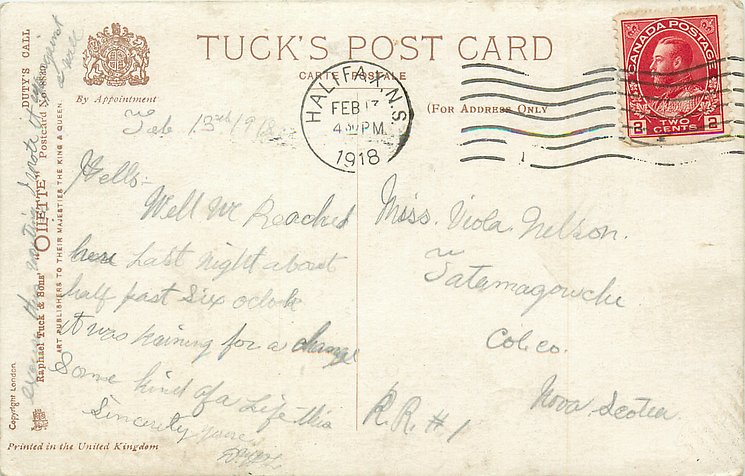 TUCK'S POST CARD
CARTE POSTALE
By Appointment
(FOR ADDRESS ONLY
HALIFAX, N.S.
FEB 13
4 PM
1918
CANADA POSTAGE
2 TWO CENTS 2
Feb 13th/1918
Hello-
Well We Reached
here Last night about
half past Six oclock
it was raining for a change
Some kind of a Life this
Sincerely yours
Miss. Viola Nelson.
Tatamagouche
Col. co.
Nova Scotia
R.R. #1
DUTY'S CALL
Raphael Tuck & Sons' "OILETTE" Postcard No.
ART PUBLISHERS TO THEIR MAJESTIES THE KING & QUEEN.
Copyright London
Printed in the United Kingdom
excuse this writing I wrote it against